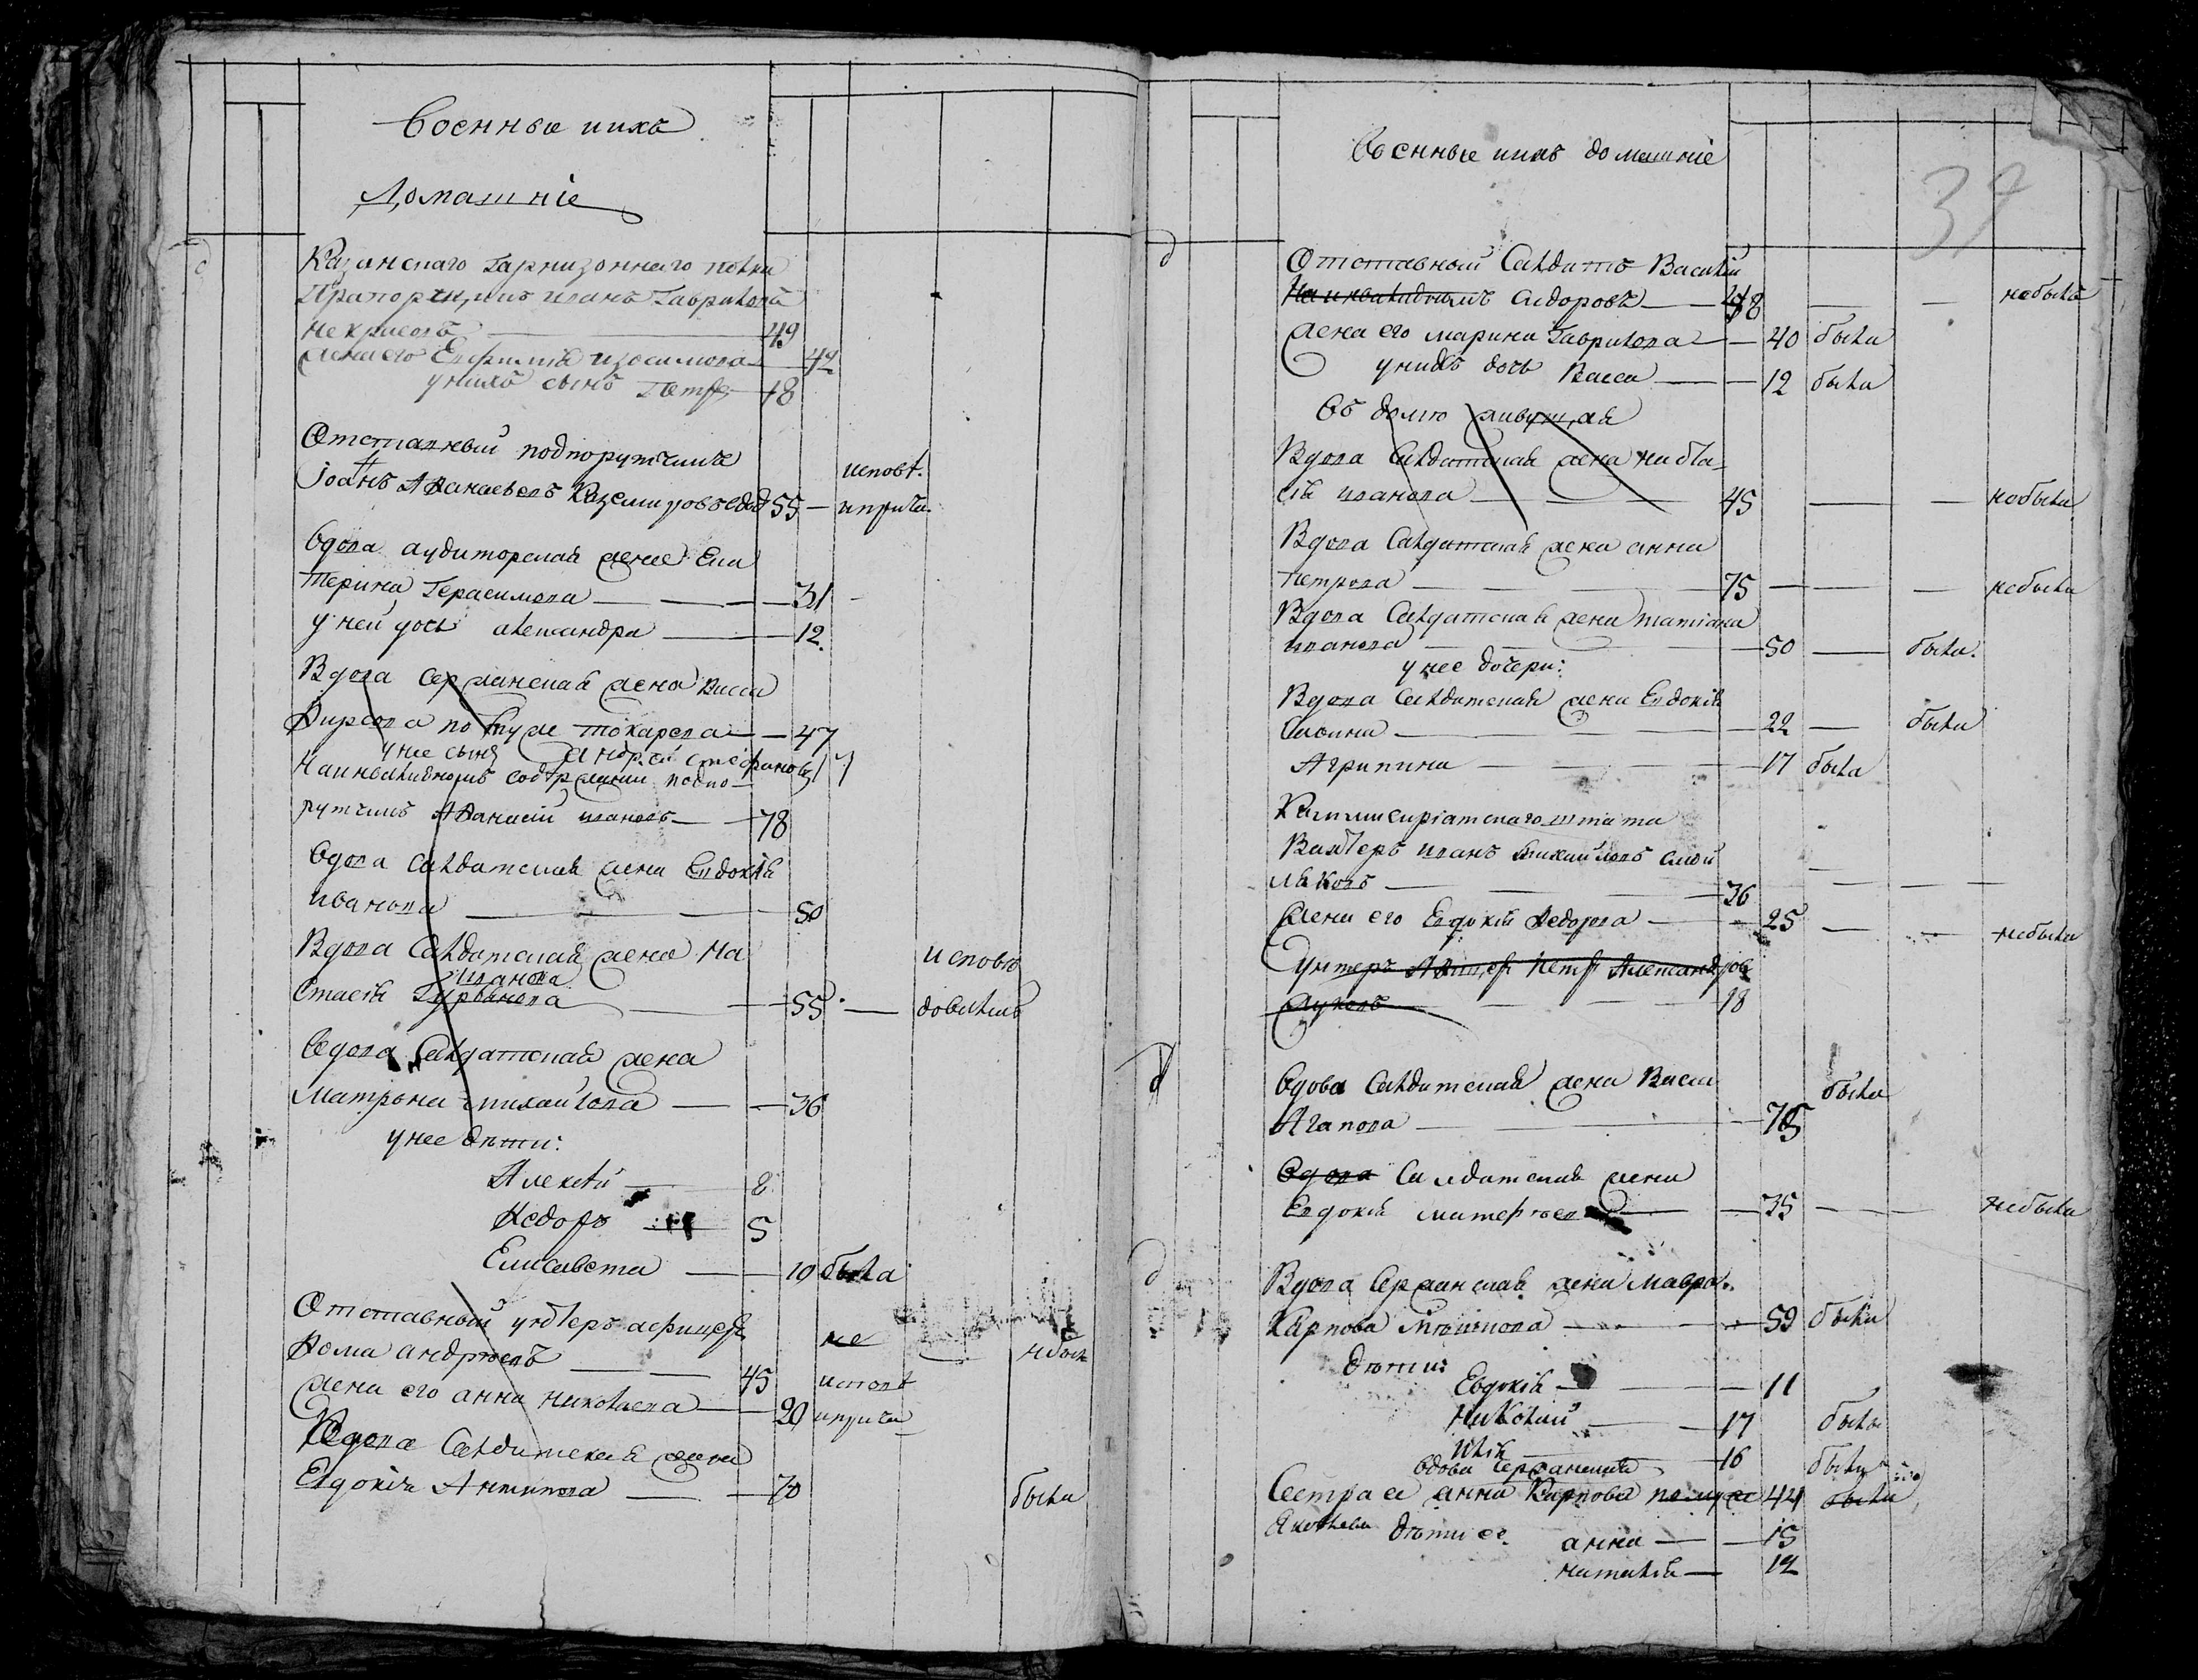 Военные ихъ
Домашніе
Казанскаго гарнизоннаго полка
Прапорщикъ иванъ Гавриловъ
Некрасовъ — 49
жена его Евфимія изосимова — 42
у нихъ сынъ Петръ — 18
Отставный подпорутчикъ исповѣ.
іоанъ Аѳанасьевъ Каземировъ вдов 55 — иприча.
вдова аудиторская жена Ека
терина Герасимова — 31
у ней дочь александра — 12
Вдова сержанская жена Васса
Фирсова по муже токарева — 47
у нее сынъ андрей стефановъ 17
На инвалидномъ содержании подпо
рутчикъ Аѳанасий ивановъ — 78
вдова салдатская жена Евдокія
иванова — 50
Вдова Салдатская жена На исповѣ
иванова
стасія Гурьянова — 55 — довались
Вдова Салдатская жена
Матрона михайлова — 36
у нее дѣти:
Алексѣй — 8
Ѳедоръ — 5
Елисавета — 10 была
Отставный унтеръ афицеръ не
Ѳома андрѣевъ — 45 исповѣ
жена его анна николаева — 20 иприча
Вдова Салдатская жена
Евдокія Антипова — 70 была
Военные ихъ домашніе
37
Отставный Салдатъ Василий
На инвалидномъ сидоровъ — 48 — небылъ
жена его марина Гаврилова — 40 была
у нихъ дочь Васса — 12 была
Въ домѣ живущая
Вдова Салдатская жена наста
сія иванова — 45 — небыла
Вдова Салдатская жена анна
петрова — 75 — небыла
Вдова Салдатская жена татіана
иванова — 50 — была.
у нее дочери:
Вдова Салдатская жена Евдокія
— 22 — была
Агрипина — 17 была
Каммисиріатскаго штата
Вахтеръ иванъ михайловъ смой
ляковъ — 36 — — —
жена его Евдокія Ѳедорова — 25 — — небыла
Унтеръ Афицеръ Петръ Александровъ
— 18
Вдова Салдатская жена Васса была
Агапова — 75
Вдова Салдатская жена
Евдокія матвѣева — 35 — — небыла
Вдова Сержанская жена Мавра
Карпова — 59 была
дѣти:
Евдокія — 11
Николай — 17 былъ
Илія — 16 былъ
вдова сержанская
Сестра ее анна Карпова по муже 44 была
Яковлева дѣти ее. анна — 15
наталія — 12